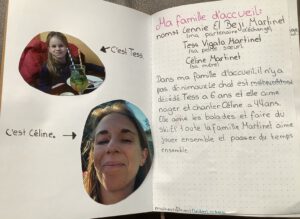 C'est Tess.
C'est Céline.
Ma famille d'accueil:
noms: Lennie El Beji Martinet
(ma partenaire d'échange)
Tess Vigato Martinet
(la petite sœur)
Céline Martinet
(la mère)
Dans ma famille d'accueil il n'y a
pas d'animaux. Le chat est
décédé. Tess a 6 ans et elle aime
nager et chanter. Céline a 44 ans.
Elle aime les balades et faire du
ski. Toute la famille Martinet aime
jouer ensemble et passer du temps
ensemble.